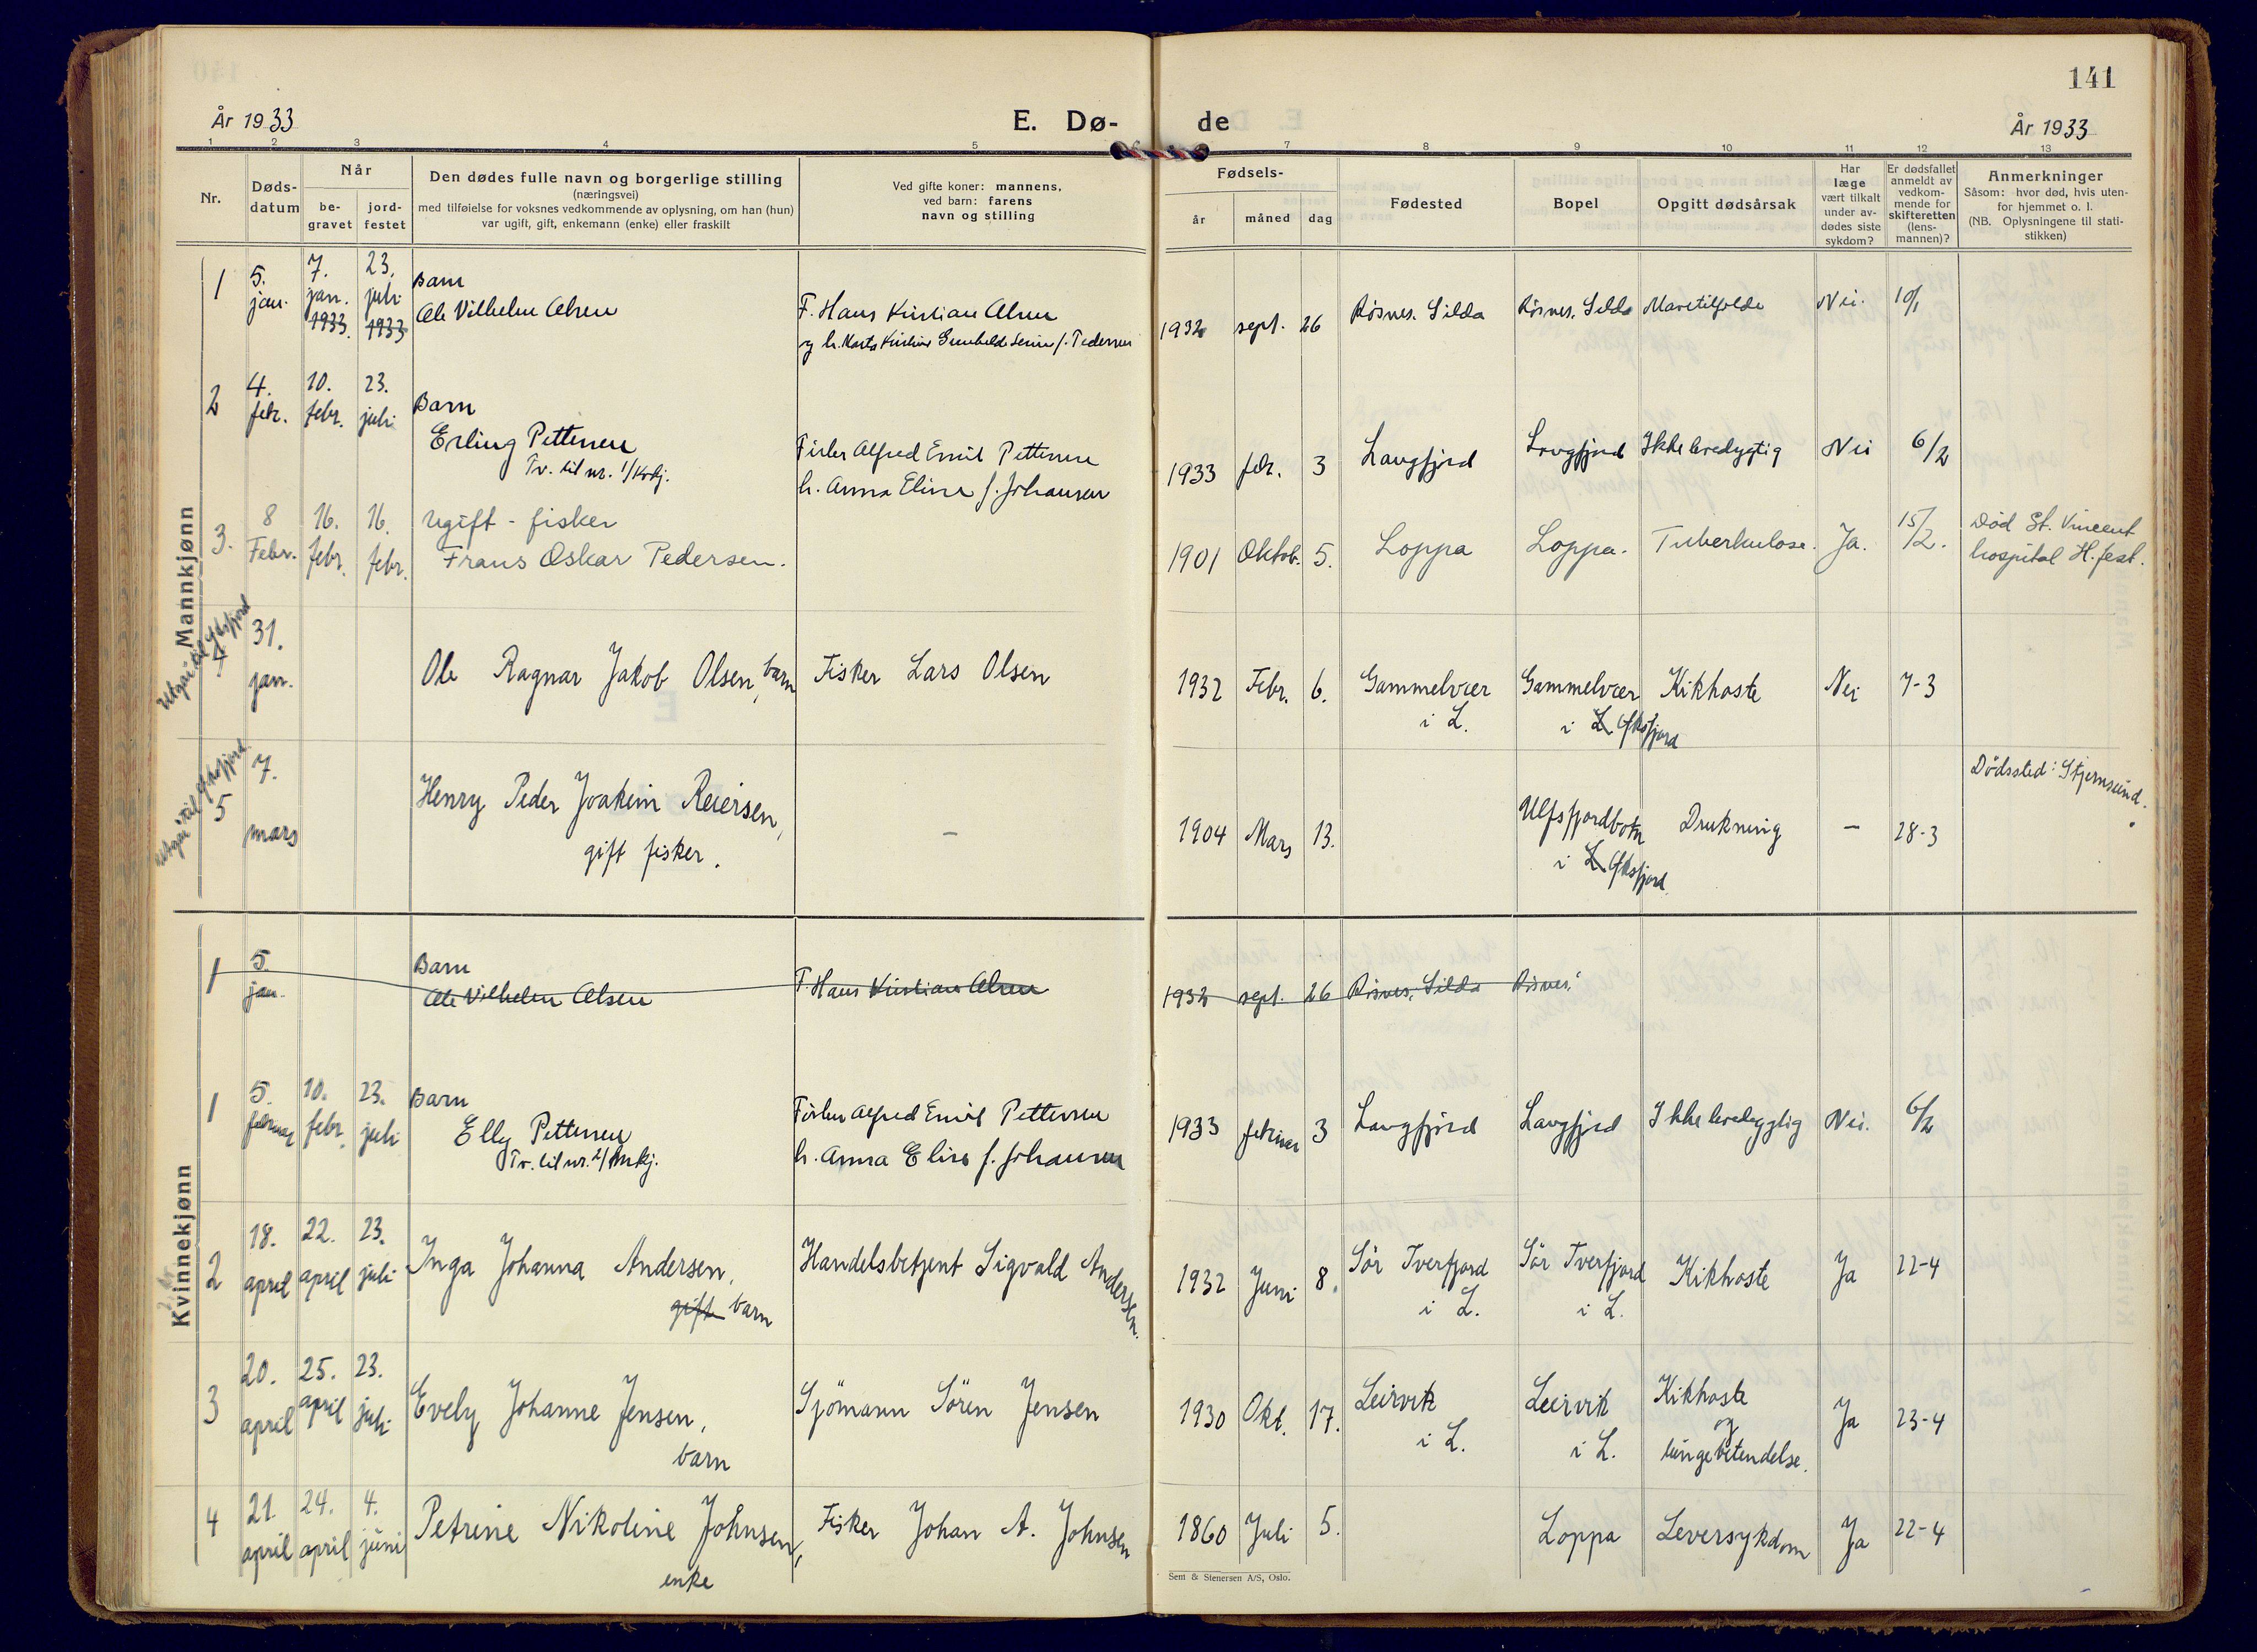 141
År 1933
E. Dø-
de
År 1933
1 2 3 4 5 6 7 8 9 10 11 12 13
Nr.
Døds-
datum
Når
be-
gravet
jord-
festet
Den dødes fulle navn og borgerlige stilling
(næringsvei)
med tilføielse for voksnes vedkommende av oplysning, om han (hun)
var ugift, gift, enkemann (enke) eller fraskilt
Ved gifte koner: mannens,
ved barn: farens
navn og stilling
Fødsels-
år
måned
dag
Fødested
Bopel
Opgitt dødsårsak
Har
læge
vært tilkalt
under av-
dødes siste
sykdom?
Er dødsfallet
anmeldt av
vedkom-
mende for
skifteretten
(lens-
mannen)?
Anmerkninger
Såsom: hvor død, hvis uten-
for hjemmet o. l.
(NB. Oplysningene til stati-
stikken)
Mannkjønn
1
5.
jan.
7.
jan.
1933.
23.
juli
1933
Barn
Ole Vilhelm Olsen
F. Hans Kristian Olsen
1932 sept. 26
Risnes. Silda
Risnes. Silda
Nei.
10/1
2
4.
febr.
10.
febr.
23.
juli
Barn
Erling Pettersen
Tv. til nr. 1/Kvkj.
Fisker Alfred Emil Pettersen
h. Anna Eline f. Johansen
1933 febr. 3
Langfjord
Langfjord
Ikke levedygtig
Nei
6/2
3.
8
Febr.
16.
febr.
16.
febr.
Ugift - fisker
Frans Oskar Pedersen.
1901 Oktob. 5.
Loppa
Loppa.
Tuberkulose.
Ja.
15/2.
Død St. Vincent
hospital H.fest.
Utgår til Øksfjord
4
31.
jan.
Ole Ragnar Jakob Olsen, barn
Fisker Lars Olsen
1932 Febr. 6.
Gammelvær
i L.
Gammelvær
i L. Øksfjord
Kikhoste
Nei
7-3
Utgår til Øksfjord
5
7.
mars
Henry Peder Joakim Reiersen,
gift fisker.
-
1904 Mars 13.
Ulfsfjordbotn
i L. Øksfjord
Drukning
-
28-3
Dødssted: Stjernsund.
Kvinnekjønn
1
5.
jan.
Barn
Ole Vilhelm Olsen
F. Hans Kristian Olsen
1932 sept. 26
Risnes, Silda
Risnes.
1
5.
februar
10.
febr.
23.
juli
Barn
Elly Pettersen
Tv. til nr. 2/Mkj.
Fisker Alfred Emil Pettersen
h. Anna Eline f. Johansen
1933 februar 3
Langfjord
Langfjord
Ikke levedygtig
Nei.
6/2
2
18.
april
22.
april
23.
juli
Inga Johanna Andersen,
gift barn
Handelsbetjent Sigvald Andersen.
1932 Juni 8.
Sör Tverfjord
i L.
Sör Tverfjord
i L.
Kikhoste
Ja
22-4
3
20.
april
25.
april
23.
juli
Evely Johanne Jensen,
barn
Sjömann Sören Jensen
1930 Okt. 17.
Leirvik
i L.
Leirvik
i L.
Kikhoste
og
lungebetendelse.
Ja
23-4
4
21.
april
24.
april
4.
juni
Petrine Nikoline Johnsen,
enke
Fisker Johan A. Johnsen
1860 Juli 5.
Loppa
Leversykdom
Ja
22-4
Sem & Stenersen A/S, Oslo.